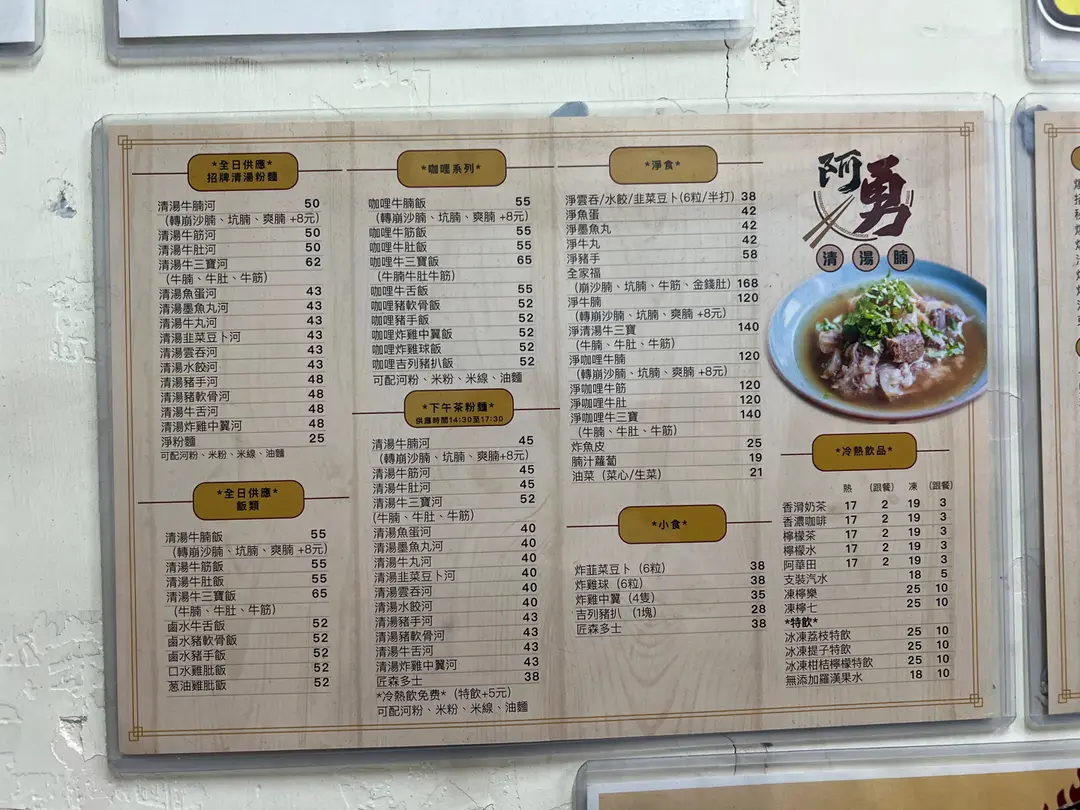 *全日供應*
招牌清湯粉麵
清湯牛腩河 50
（轉崩沙腩、坑腩、爽腩 +8元）
清湯牛筋河 50
清湯牛肚河 50
清湯牛三寶河 62
（牛腩、牛肚、牛筋）
清湯魚蛋河 43
清湯墨魚丸河 43
清湯牛丸河 43
清湯韭菜豆卜河 43
清湯雲吞河 43
清湯水餃河 43
清湯豬手河 48
清湯豬軟骨河 48
清湯牛舌河 48
清湯炸雞中翼河 48
淨粉麵 25
可配河粉、米粉、米線、油麵
*全日供應*
飯類
清湯牛腩飯 55
（轉崩沙腩、坑腩、爽腩 +8元）
清湯牛筋飯 55
清湯牛肚飯 55
清湯牛三寶飯 65
（牛腩、牛肚、牛筋）
鹵水牛舌飯 52
鹵水豬軟骨飯 52
鹵水豬手飯 52
口水雞肶飯 52
葱油雞肶飯 52
*咖喱系列*
咖喱牛腩飯 55
（轉崩沙腩、坑腩、爽腩 +8元）
咖喱牛筋飯 55
咖喱牛肚飯 55
咖喱牛三寶飯 65
（牛腩牛肚牛筋）
咖喱牛舌飯 55
咖喱豬軟骨飯 52
咖喱豬手飯 52
咖喱炸雞中翼飯 52
咖喱炸雞球飯 52
咖喱吉列豬扒飯 52
可配河粉、米粉、米線、油麵
*下午茶粉麵*
供應時間14:30至17:30
清湯牛腩河 45
（轉崩沙腩、坑腩、爽腩+8元）
清湯牛筋河 45
清湯牛肚河 45
清湯牛三寶河 52
(牛腩、牛肚、牛筋）
清湯魚蛋河 40
清湯墨魚丸河 40
清湯牛丸河 40
清湯韭菜豆卜河 40
清湯雲吞河 40
清湯水餃河 40
清湯豬手河 43
清湯豬軟骨河 43
清湯牛舌河 43
清湯炸雞中翼河 43
匠森多士 38
*冷熱飲免費*（特飲+5元）
可配河粉、米粉、米線、油麵
*淨食*
淨雲吞/水餃/韭菜豆卜(6粒/半打) 38
淨魚蛋 42
淨墨魚丸 42
淨牛丸 42
淨豬手 58
全家福
（崩沙腩、坑腩、牛筋、金錢肚） 168
淨牛腩 120
（轉崩沙腩、坑腩、爽腩 +8元）
淨清湯牛三寶 140
（牛腩、牛肚、牛筋）
淨咖喱牛腩 120
（轉崩沙腩、坑腩、爽腩 +8元）
淨咖喱牛筋 120
淨咖喱牛肚 120
淨咖喱牛三寶 140
（牛腩、牛肚、牛筋）
炸魚皮 25
腩汁蘿蔔 19
油菜（菜心/生菜） 21
*小食*
炸韮菜豆卜（6粒） 38
炸雞球（6粒） 38
炸雞中翼（4隻） 35
吉列豬扒（1塊） 28
匠森多士 38
阿勇
清湯腩
*冷熱飲品*
熱 (跟餐) 凍 (跟餐)
香滑奶茶 17 2 19 3
香濃咖啡 17 2 19 3
檸檬茶 17 2 19 3
檸檬水 17 2 19 3
阿華田 17 2 19 3
支裝汽水 18 5
凍檸樂 25 10
凍檸七 25 10
*特飲*
冰凍荔枝特飲 25 10
冰凍提子特飲 25 10
冰凍柑桔檸檬特飲 25 10
無添加羅漢果水 18 10